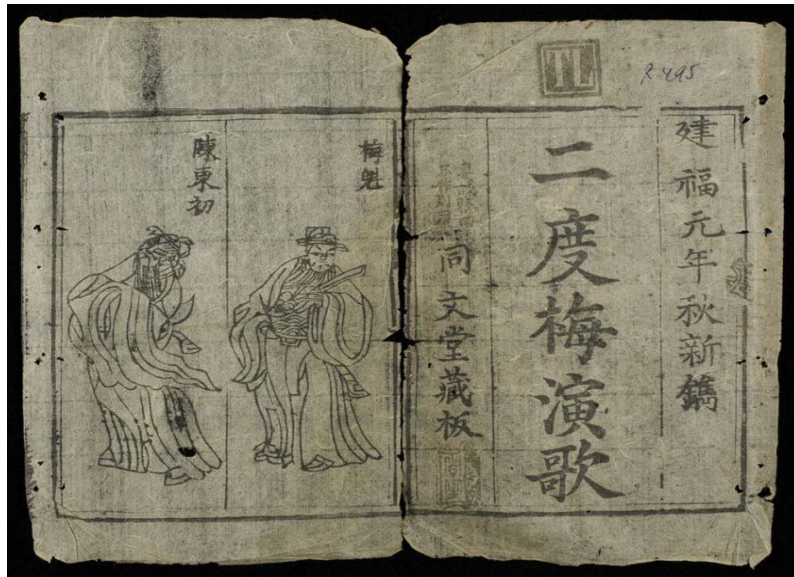 TL
R.495
建福元年秋新鐫
二度梅演歌
同文堂藏板
梅魁
陳東初